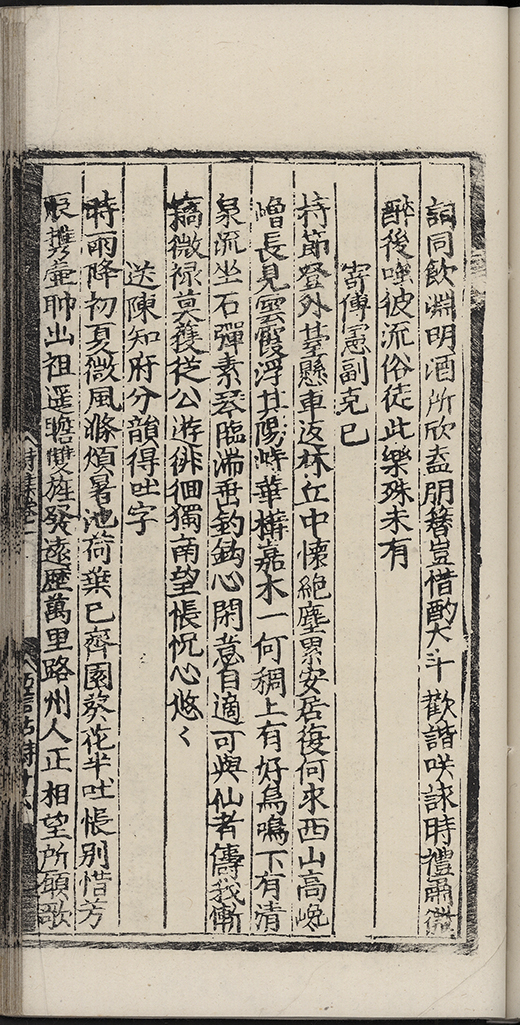 詞同飲淵明酒所欣盍朋簪豈惜酌大斗歡諧咲諫時禮肅微
醉後嗤彼流俗徒此樂殊未有
寄傅憲副克巳
持節登外臺懸車返林丘中懷絕塵累安居復何求西山高巉
嶒長見雲霞浮其陽峙華構嘉木一何稠上有好鳥鳴下有清
泉流坐石彈素琴臨湍垂釣鈎心閑意自適可與仙者儔我慚
竊微禄莫獲從公遊徘徊獨南望悵怳心悠〻
送陳知府分韻得吐字
時雨降初夏微風滌煩暑池荷葉已齊園葵花半吐悵別惜芳
辰携壺聊出祖遥瞻雙旌發遠歷萬里路州人正相望所願歌